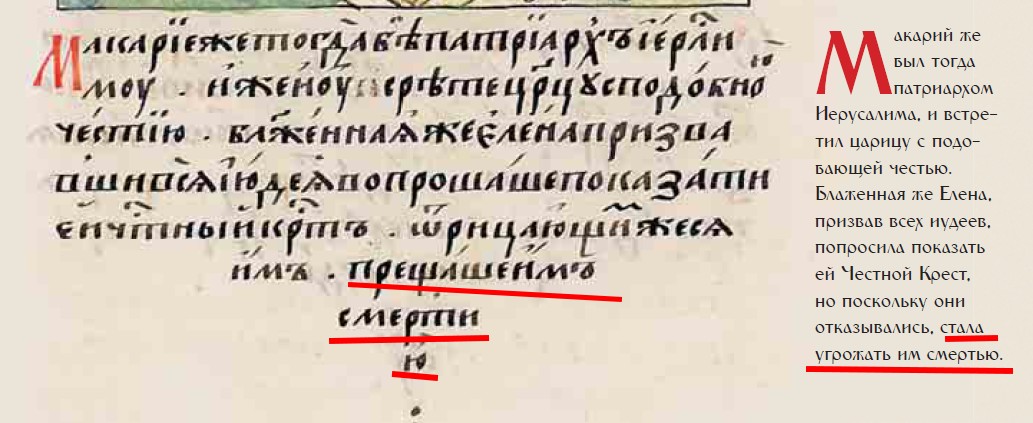 Макарїе же тогда бѣ патрїархъ їерⷭли
моу . срѣте цр҃цꙋ с подобною
честїю . блаженнаѧ же Єлена призва
вши всѧ їюдеѧ попрошаше показати
еи чⷭтныи крⷭтъ . ѿрицающимжесѧ
имъ . прещаше имъ
смерти
ю
.
Макарий же
был тогда
патриархом
Иерусалима, и встре-
тил царицу с подо-
бающей честью.
Блаженная же Елена,
призвав всех иудеев,
попросила показать
ей Честной Крест,
но поскольку они
отказывались, стала
угрожать им смертью.